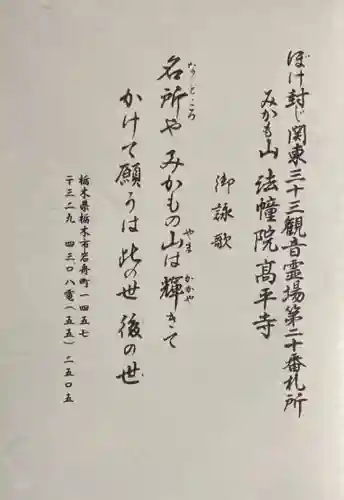 ぼけ封じ関東三十三観音霊場第二十番札所
みかも山 法幢院 高平寺
御詠歌
名所や みかもの山は 輝きて
などころ
やま
かがや
かけて願うは 此の世 後の世
栃木県栃木市岩舟町一四五七
〒三二九 四三〇八 電(五五)二五〇五